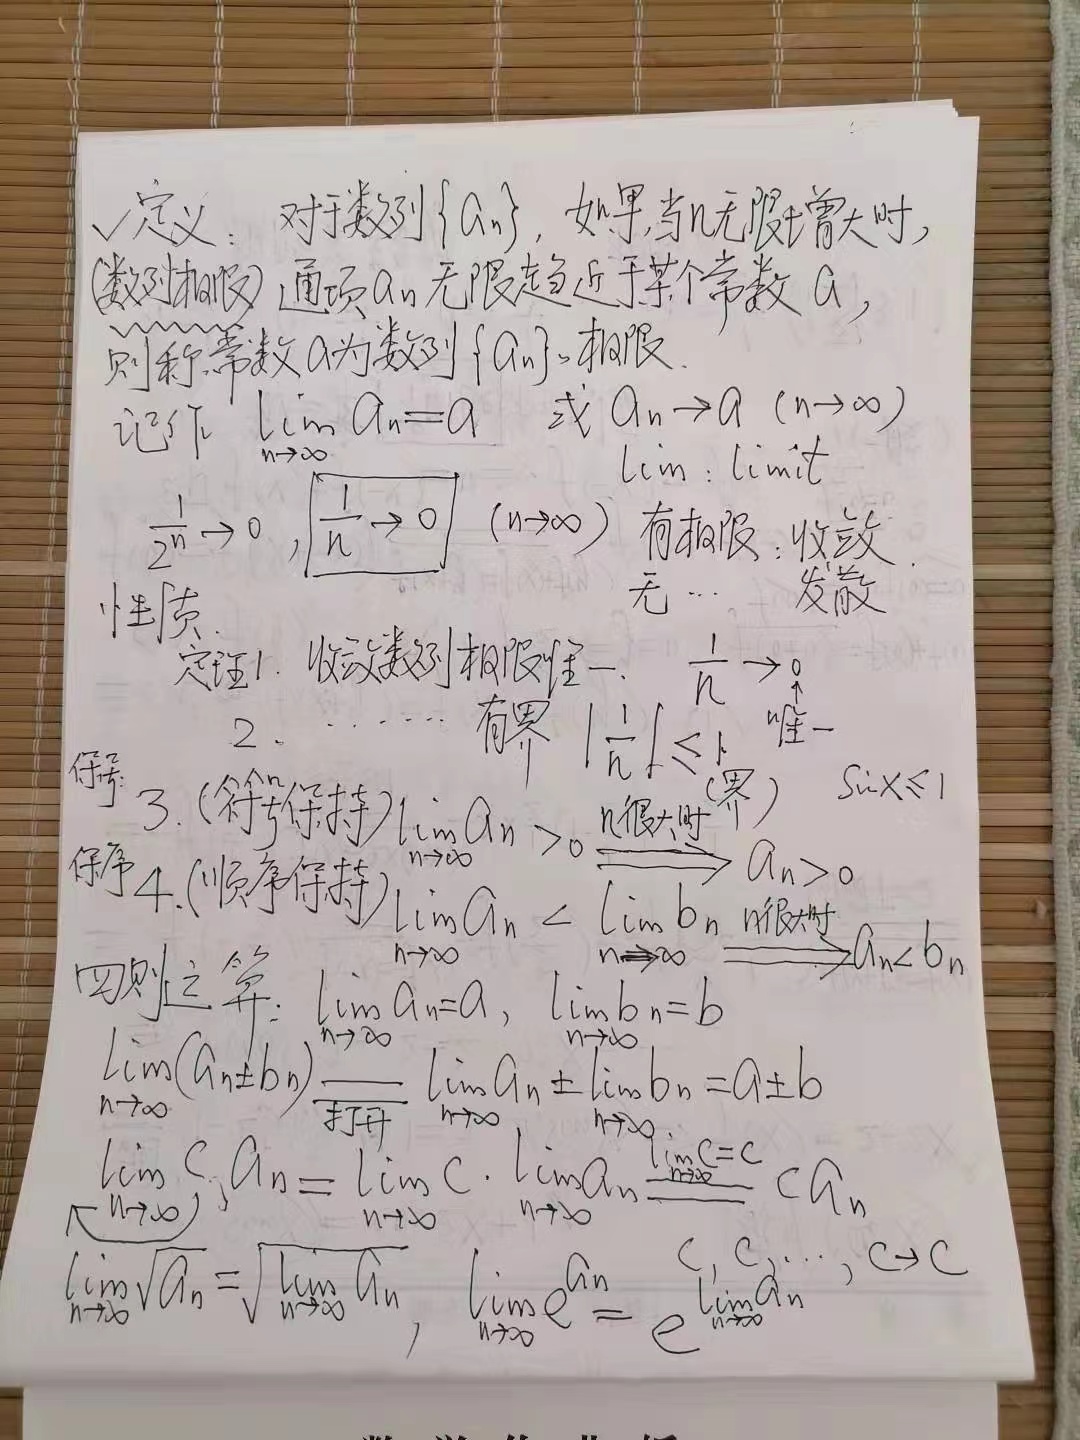 ✓定义: 对于数列{aₙ}, 如果当n无限增大时,
(数列极限) 通项aₙ无限趋近于某个常数a,
则称常数a为数列{aₙ}。极限.
记作 lim_{n→∞} aₙ=a 或 aₙ→a (n→∞)
lim: limit
1/2ⁿ→0, 1/n→0 (n→∞) 有极限: 收敛.
无… 发散
性质.
定理1. 收敛数列极限唯一. 1/n→0
唯一
2. …… 有界 |1/n|≤1
(界) sinx≤1
保号: 3. (符号保持) lim_{n→∞} aₙ>0 n很大时 ⟹ aₙ>0
保序 4. (顺序保持) lim_{n→∞} aₙ < lim_{n→∞} bₙ n很大时 ⟹ aₙ<bₙ
四则运算: lim_{n→∞} aₙ=a, lim_{n→∞} bₙ=b
lim_{n→∞} (aₙ±bₙ) = 打开 lim_{n→∞} aₙ ± lim_{n→∞} bₙ = a±b
lim_{n→∞} c·aₙ = lim_{n→∞} c · lim_{n→∞} aₙ = lim_{n→∞} c=c c aₙ
c, c, …, c→c
lim_{n→∞} √aₙ = √(lim_{n→∞} aₙ), lim_{n→∞} e^{aₙ} = e^{lim_{n→∞} aₙ}